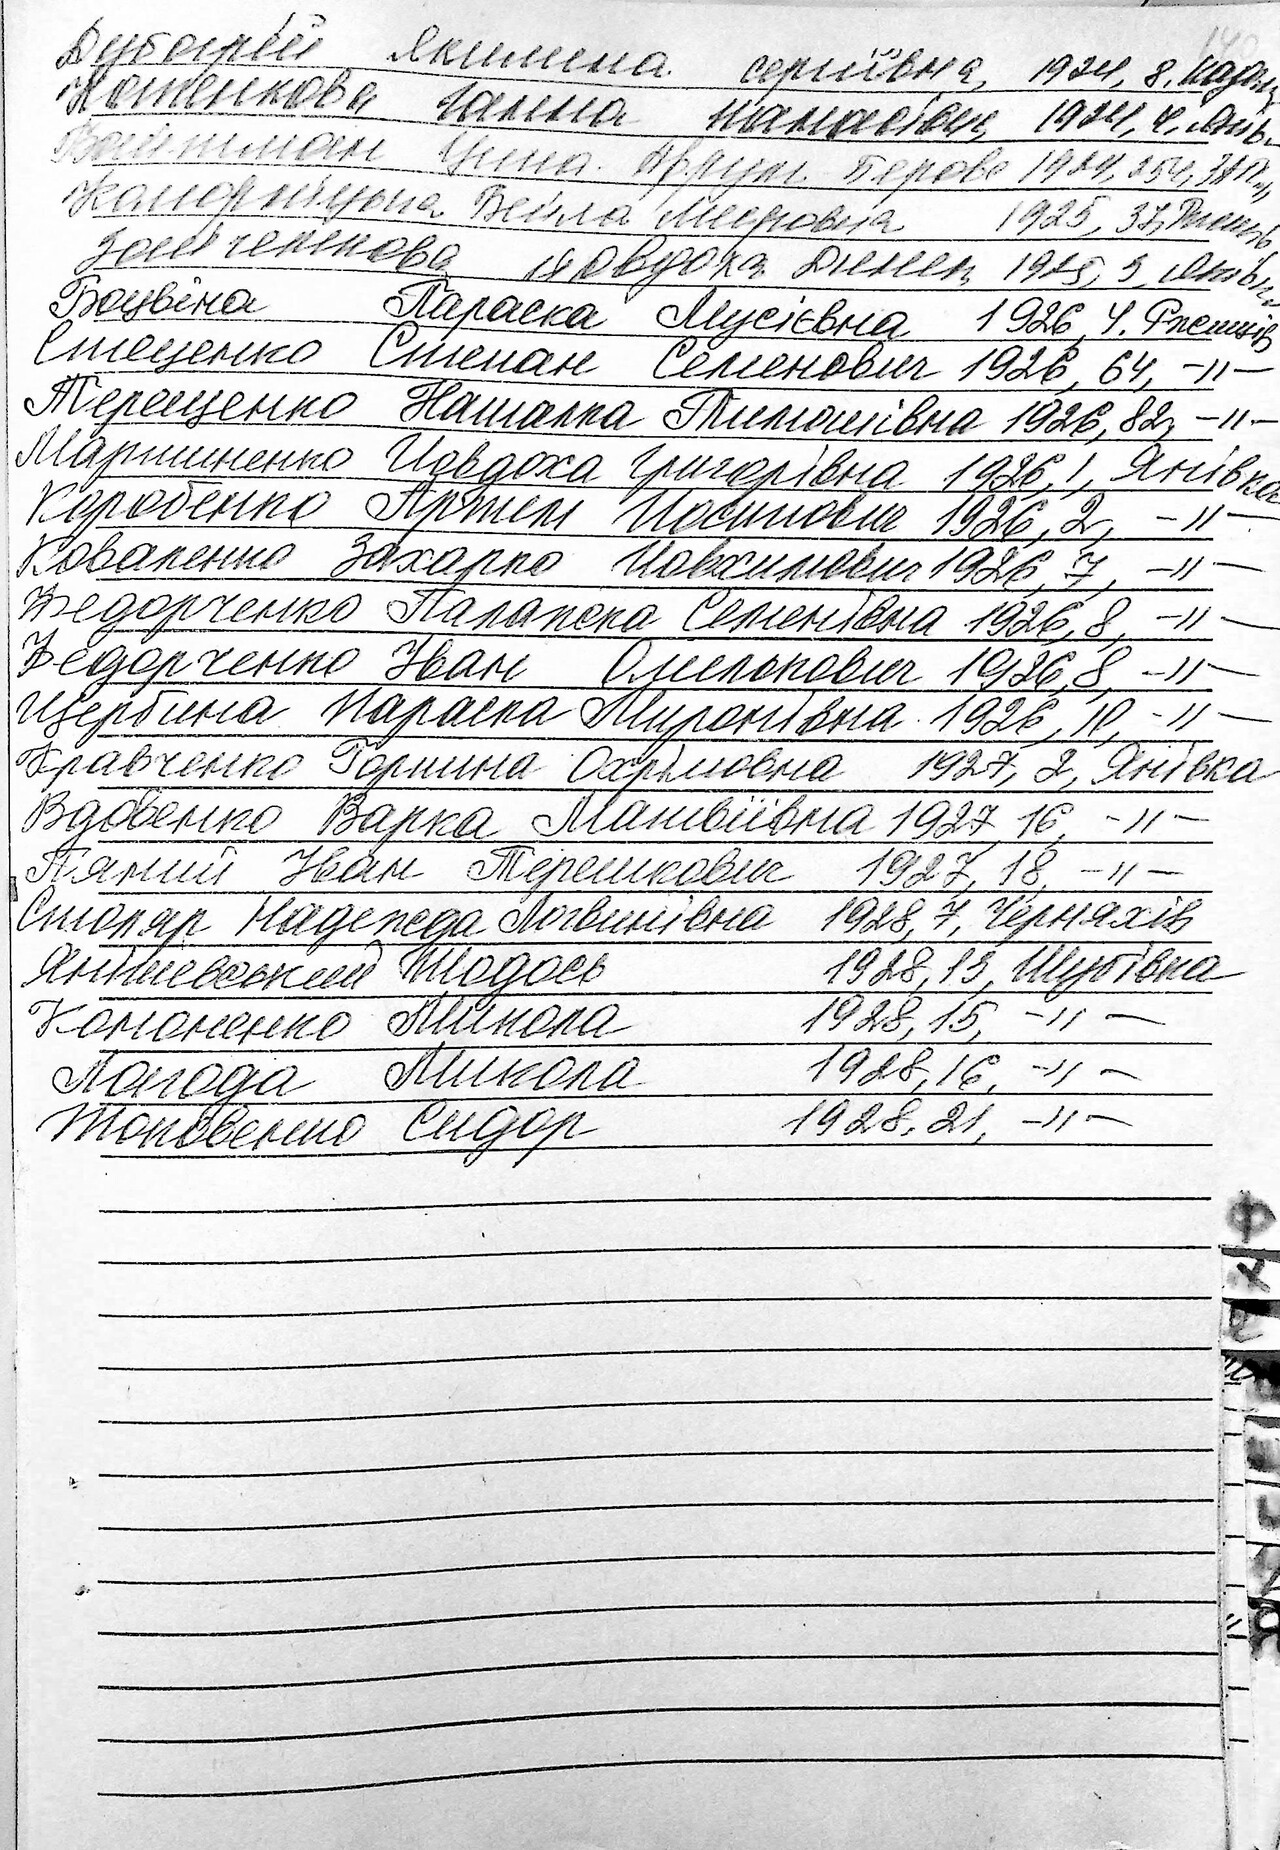 Якимена Сергіївна, 1924, 8.
Ганна 1924, 4,
Вайтман 1924, 254,
Бейла Меєровна 1925, 37, Ржищів
Явдоха 1925, 3,
Боцвіна Параска Мусієвна 1926, 4. Ржищів
Стеценко Степан Семенович 1926, 64, -"-
Терещенко Наталка Тимошівна 1926, 82, -"-
Мартиненко Йовдоха Григорівна 1926, 1, Янівка
Коробенко Артем Йосипович 1926, 2, -"-
Коваленко Захарко Йовхимович 1926, 7, -"-
Федорченко Палажка Семенівна 1926, 8, -"-
Федорченко Іван Омелькович 1926, 8, -"-
Щербина Параска Миронівна 1926, 10, -"-
Кравченко Горпина Охрімовна 1927, 2, Янівка
Вдовенко Варка Матвіївна 1927, 16, -"-
Пятий Іван Терешкович 1927, 18, -"-
Столяр Надежда Логвинівна 1928, 7, Черняхів
Янішевський Тодось 1928, 13, Шубівка
Кононенко Микола 1928, 15, -"-
Погода Микола 1928, 16, -"-
Токовенко Сидор 1928, 21, -"-